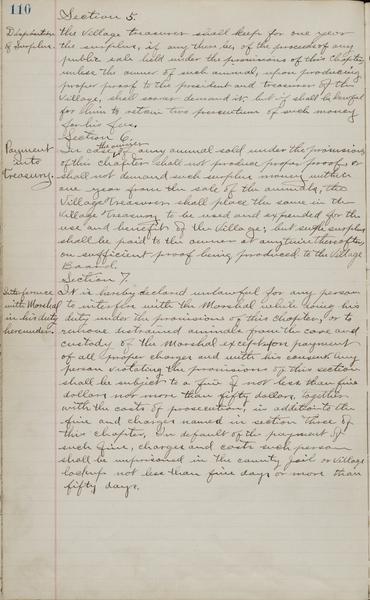 110
Section 5.
Disposition
of Surplus.
the Village treasurer shall keep for one year
the surplus, if any there be, of the proceeds of any
public sale held under the provisions of this Chapter,
unless the owner of such animal, upon producing
proper proof to the president and treasurer of the
Village, shall sooner demand it, but it shall be lawful
for him to retain two per centum of such money
for his fees.
Section 6.
Payment
into
Treasury.
the owner
In case of any animal sold under the provisions
of this chapter shall not produce proper proof, or
shall not demand such surplus money within
one year from the sale of the animals, the
Village Treasurer shall place the same in the
Village Treasury to be used and expended for the
use and benefit of the Village; but such surplus
shall be paid to the owner at any time thereafter,
on sufficient proof being produced to the Village
Board.
Section 7.
Interference
with Marshal
in his duty
hereunder.
It is hereby declared unlawful for any person
to interfere with the Marshal while doing his
duty under the provisions of this Chapter, or to
remove distrained animals from the care and
custody of the Marshal except on payment
of all proper charges and with his consent. Any
person violating the provisions of this section
shall be subject to a fine of not less than five
dollars nor more than fifty dollars, together
with the costs of prosecution, in addition to the
fine and charges named in section three of
this chapter, In default of the payment of
such fine, charges and costs such person
shall be imprisoned in the county jail or village
lockup not less than five days or more than
fifty days.